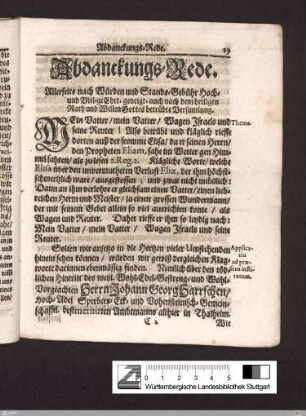 Abdanckungs-Rede. 19
Abdanckungs-Rede.
Allerseits nach Würden und Stands-Gebühr Hoch-
und Viel-geEhrt-geneigt-auch nach dem heiligen
Rath und Willen Gottes betrübte Versamlung.
MEin Vatter/ mein Vatter/ Wagen Israels und Thema.
seine Reuter! Also betrübt und kläglich rieffe
dorten auß der fromme Elisa/ da er seinen Herrn/
den Propheten Eliam, sahe im Wetter gen Him-
mel fahren/ als zu lesen 2. Reg. 2. Klägliche Worte/ welche
Elisa über den unvermutheten Verlust Eliæ, der ihm höchst-
schmertzlich ware/ außgestossen; und zwar nicht unbillich:
Dann an ihm verlohre er gleichsam einen Vatter/ einen lieb-
reichen Herrn und Meister/ ja einen grossen Wundermann/
der mit seinem Gebet allein so viel außrichten konte/ als
Wagen und Reuter. Daher rieffe er ihm so leydig nach:
Mein Vatter/ mein Vatter/ Wagen Israels und seine
Reuter.
Solten wir anjetzo in die Hertzen vieler Umstehenden Applica-
hinein sehen können/ würden wir gewiß dergleichen Klag-
worte darinnen ebenmässig finden. Nemlich über den tödt-
lichen Hintritt des weyl. Wohl-Edel-Gestreng- und Wohl-
Vorgeachten Herrn Johann Georg Harrschen/
Hoch-Adel. Sperbers-Eck- und Hohensteinisch-Gemein-
schafftl. bestmeritirten Ambtmanns allhier in Thalheim.
C 2 Wie
Württembergische Landesbibliothek Stuttgart